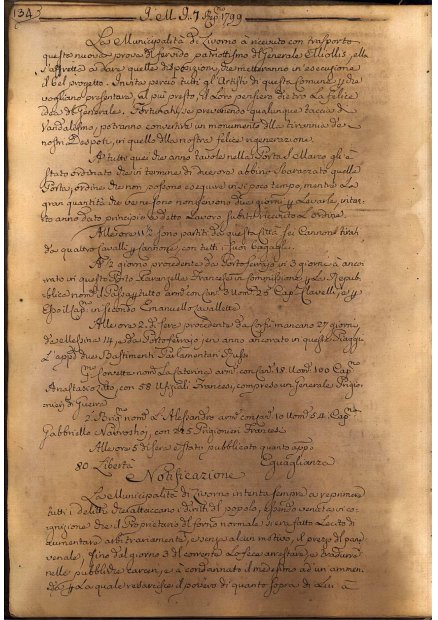 134
La Municipalità di Livorno à ricevuto con trasporto
questa nuova prova di fervido patriottismo del Generale Elliollis, ella
s'affretta a dare quelle disposizioni, che metteranno in esecuzione
il bel progetto. Invita perciò tutti gl'Artisti di questa Comune, che
vogliano presentare, al più presto, il loro pensiero dietro la felice
idea del Generale. Fortunati, se prevenendo qualunque taccia di
Vandalismo, potranno convertire un monumento della tirannia de
nostri Despoti, in quello della nostra felice rigenerazione.
A tutti quei che anno tavole nella Porta S. Marco gli è
stato ordinato che in termine di ore abbino sbarazzato quella
Porta, ordine che non possono eseguire in sì poco tempo, mentre la
gran quantità che ve ne sono non servono due giorni p levarle, intan
to anno dato principio a detto Lavoro subito ricevuto l'ordine.
Alle ore 11½ sono partiti da questa Città sei Cannoni tirati
da quattro cavalli p cannone, con tutti i suoi bagagli.
A ½ giorno procedente da Portoferrajo in 3 giorni à anco
rato in questo Porto Francese in commissione p la Repub
blica nom.
Esso il Cap. in secondo Emanuello Cavallette.
Alle ore 2 di sera procedente da Corfù mancano 27 giorni,
da Messina 14, e da Portoferrajo jeri anno ancorato in questa Spiaggi
a l'appo due Bastimenti Parlamentari Russi
Corvette nom. La Caterina arm. con Can. 18 Uom. 100 Cap.
Anastasio, con 58 Ufizali Francesi, compreso un Generale Prigio
nieri di Guerra
2º Brig. nom. L'Alessandro arm. con Can. 10 Uom. 54 Cap.
Gabbriello, con 245 Prigionieri Francesi
Alle ore 5 di sera è stato pubblicato quanto appo
80 Libertà Eguaglianza
Notificazione
La Municipalità di Livorno intenta sempre a reprimere
tutti i delitti che attaccano i diritti del popolo, essendo venuta in co
gnizione che il Proprietario del forno normale si era fatto lecito di
aumentare arbitrariamente, e senza alcun motivo, il prezzo del pane
venale, fino dal giorno 3 del corrente lo fece arrestare, e tradurre
nelle pubbliche carceri, e à condannato il medesimo ad un ammen
da p la quale resarcisce il povero di quanto sopra di lui à